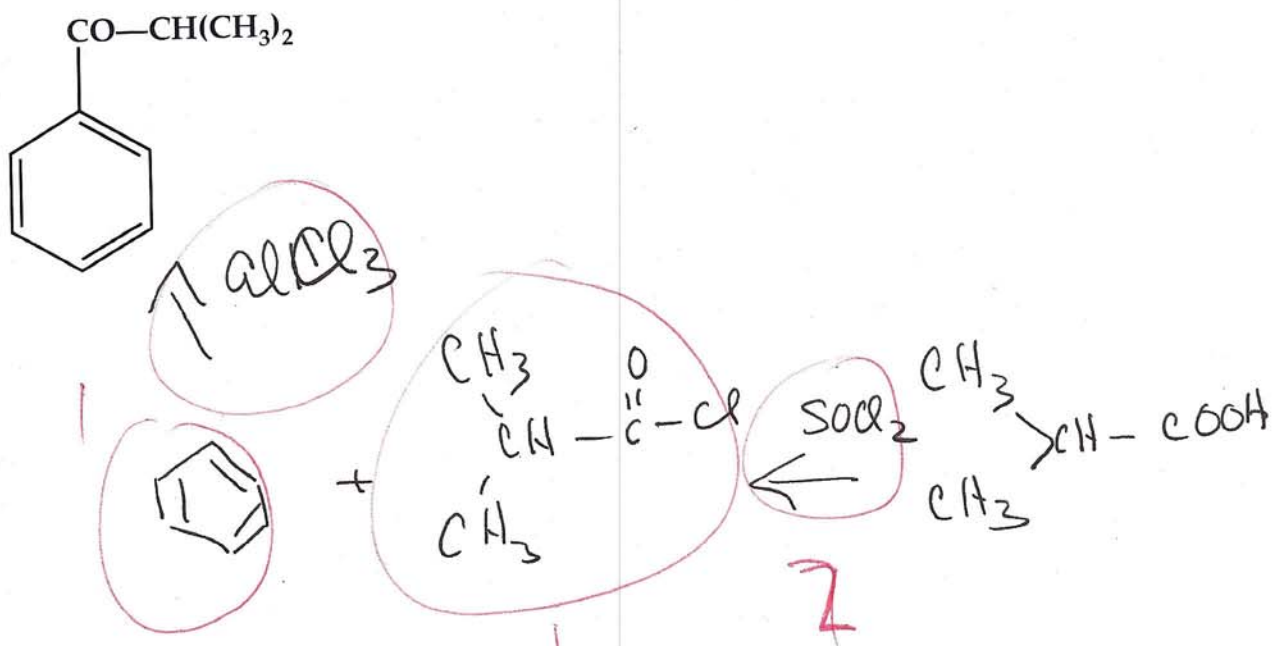 CO—CH(CH₃)₂
AlCl₃
CH₃
O
CH — C — Cl
CH₃
+
SOCl₂
CH₃
CH — COOH
CH₃
1
1
2